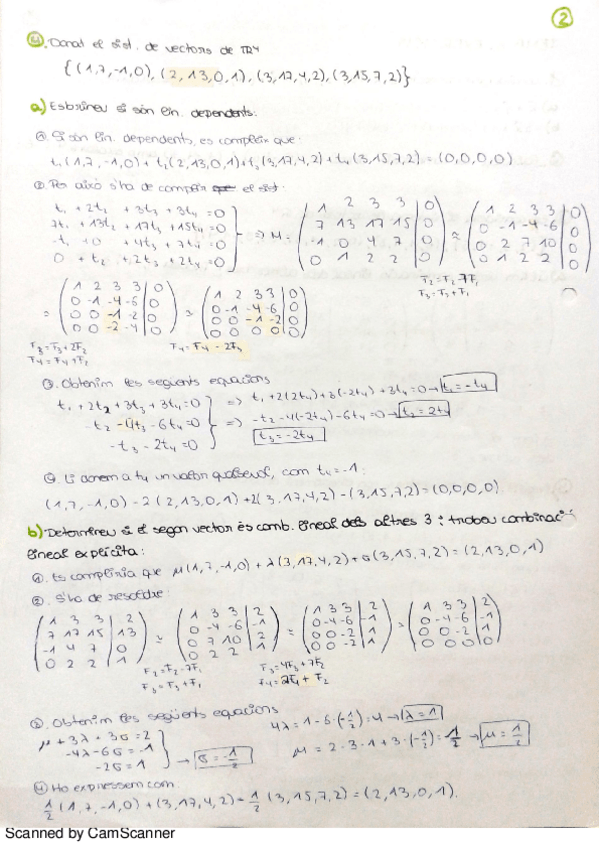 2
4. Donat el sist. de vectors de TR4
{(1,7,-1,0), (2,13,0,1), (3,17,4,2), (3,15,7,2)}
a) Esbrineu si són lin. dependents:
① Si són lin. dependents, es compleix que:
t₁(1,7,-1,0) + t₂(2,13,0,1) + t₃(3,17,4,2) + t₄(3,15,7,2) = (0,0,0,0)
② Per això s'ha de complir que el sist:
t₁ + 2t₂ + 3t₃ + 3t₄ = 0
7t₁ + 13t₂ + 17t₃ + 15t₄ = 0
-t₁ + 0 + 4t₃ + 7t₄ = 0
0 + t₂ + 2t₃ + 2t₄ = 0
⇒ M = ( 1 2 3 3 | 0
7 13 17 15 | 0
-1 0 4 7 | 0
0 1 2 2 | 0 )
≈ ( 1 2 3 3 | 0
0 -1 -4 -6 | 0
0 2 7 10 | 0
0 1 2 2 | 0 )
F₂ = F₂ - 7F₁
F₃ = F₃ + F₁
= ( 1 2 3 3 | 0
0 -1 -4 -6 | 0
0 0 -1 -2 | 0
0 0 -2 -4 | 0 )
F₃ = F₃ + 2F₂
F₄ = F₄ + F₂
≈ ( 1 2 3 3 | 0
0 -1 -4 -6 | 0
0 0 -1 -2 | 0
0 0 0 0 | 0 )
F₄ = F₄ - 2F₃
③ Obtenim les següents equacions
t₁ + 2t₂ + 3t₃ + 3t₄ = 0 ⇒ t₁ + 2(2t₄) + 3(-2t₄) + 3t₄ = 0 → t₁ = -t₄
-t₂ - 4t₃ - 6t₄ = 0 ⇒ -t₂ - 4(-2t₄) - 6t₄ = 0 → t₂ = 2t₄
-t₃ - 2t₄ = 0 t₃ = -2t₄
④ Li donem a t₄ un valor qualsevol, com t₄ = -1:
(1,7,-1,0) - 2(2,13,0,1) + 2(3,17,4,2) - (3,15,7,2) = (0,0,0,0)
b) Determineu si el segon vector és comb. lineal dels altres 3 i trobeu combinació
lineal explícita:
① Es compliria que μ(1,7,-1,0) + λ(3,17,4,2) + σ(3,15,7,2) = (2,13,0,1)
② S'ha de resoldre:
( 1 3 3 | 2
7 17 15 | 13
-1 4 7 | 0
0 2 2 | 1 )
≈ ( 1 3 3 | 2
0 -4 -6 | -1
0 7 10 | 2
0 2 2 | 1 )
F₂ = F₂ - 7F₁
F₃ = F₃ + F₁
= ( 1 3 3 | 2
0 -4 -6 | -1
0 0 -2 | 1
0 0 -2 | 1 )
F₃ = 4F₃ + 7F₂
F₄ = 2F₄ + F₂
≈ ( 1 3 3 | 2
0 -4 -6 | -1
0 0 -2 | 1
0 0 0 | 0 )
③ Obtenim les següents equacions
μ + 3λ + 3σ = 2
-4λ - 6σ = -1
-2σ = 1 → σ = -1/2
4λ = 1 - 6·(-1/2) = 4 → λ = 1
μ = 2 - 3·1 + 3·(-1/2) = 1/2 → μ = 1/2
④ Ho expressem com:
1/2 (1,7,-1,0) + (3,17,4,2) - 1/2 (3,15,7,2) = (2,13,0,1).
Scanned by CamScanner